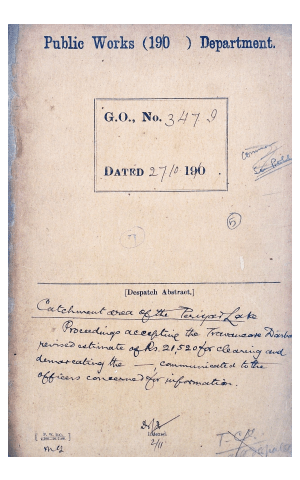 Public Works (190 ) Department.
G.O., No. 3479
DATED 27/10 190
5
[Despatch Abstract.]
Catchment area of the Periyar Lake
Proceedings accepting the Travancore Darbar
revised estimate of Rs. 21,520 for clearing and
demarcating the — communicated to the
officers concerned for information.
Issued.
2/11